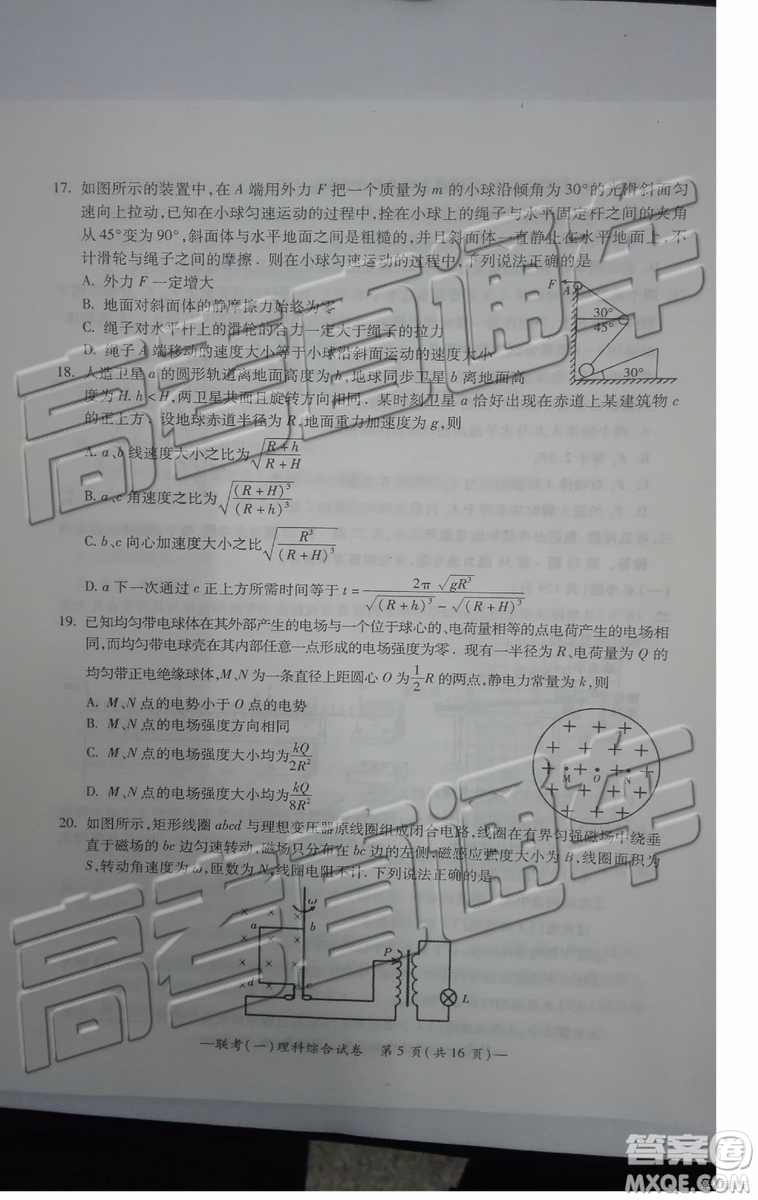 17. 如图所示的装置中,在 A 端用外力 F 把一个质量为 m 的小球沿倾角为 30°的光滑斜面匀
速向上拉动,已知在小球匀速运动的过程中,拴在小球上的绳子与水平固定杆之间的夹角
从 45°变为 90°,斜面体与水平地面之间是粗糙的,并且斜面体一直静止在水平地面上,不
计滑轮与绳子之间的摩擦．则在小球匀速运动的过程中,下列说法正确的是
A. 外力 F 一定增大
B. 地面对斜面体的静摩擦力始终为零
C. 绳子对水平杆上的滑轮的合力一定大于绳子的拉力
D. 绳子 A 端移动的速度大小等于小球沿斜面运动的速度大小
F
A
30°
45°
30°
18. 人造卫星 a 的圆形轨道离地面高度为 h,地球同步卫星 b 离地面高
度为 H, h < H,两卫星共面且旋转方向相同．某时刻卫星 a 恰好出现在赤道上某建筑物 c
的正上方．设地球赤道半径为 R,地面重力加速度为 g,则
A. a、b 线速度大小之比为 √((R+h)/(R+H))
B. a、c 角速度之比为 √((R+H)³/(R+h)³)
C. b、c 向心加速度大小之比 √(R³/(R+H)³)
D. a 下一次通过 c 正上方所需时间等于 t = 2π√(gR³)/(√((R+h)³) − √((R+H)³))
19. 已知均匀带电球体在其外部产生的电场与一个位于球心的、电荷量相等的点电荷产生的电场相
同,而均匀带电球壳在其内部任意一点形成的电场强度为零．现有一半径为 R、电荷量为 Q 的
均匀带正电绝缘球体,M、N 为一条直径上距圆心 O 为 1/2 R 的两点,静电力常量为 k,则
A. M、N 点的电势小于 O 点的电势
B. M、N 点的电场强度方向相同
C. M、N 点的电场强度大小均为 kQ/2R²
D. M、N 点的电场强度大小均为 kQ/8R²
M O N
20. 如图所示,矩形线圈 abcd 与理想变压器原线圈组成闭合电路,线圈在有界匀强磁场中绕垂
直于磁场的 bc 边匀速转动,磁场只分布在 bc 边的左侧,磁感应强度大小为 B,线圈面积为
S,转动角速度为 ω,匝数为 N,线圈电阻不计．下列说法正确的是
ω
a
b
d
c
P
L
—联考(一)理科综合试卷 第 5 页(共 16 页)—
高考直通车
高考直通车
答案圈
MXQE.COM